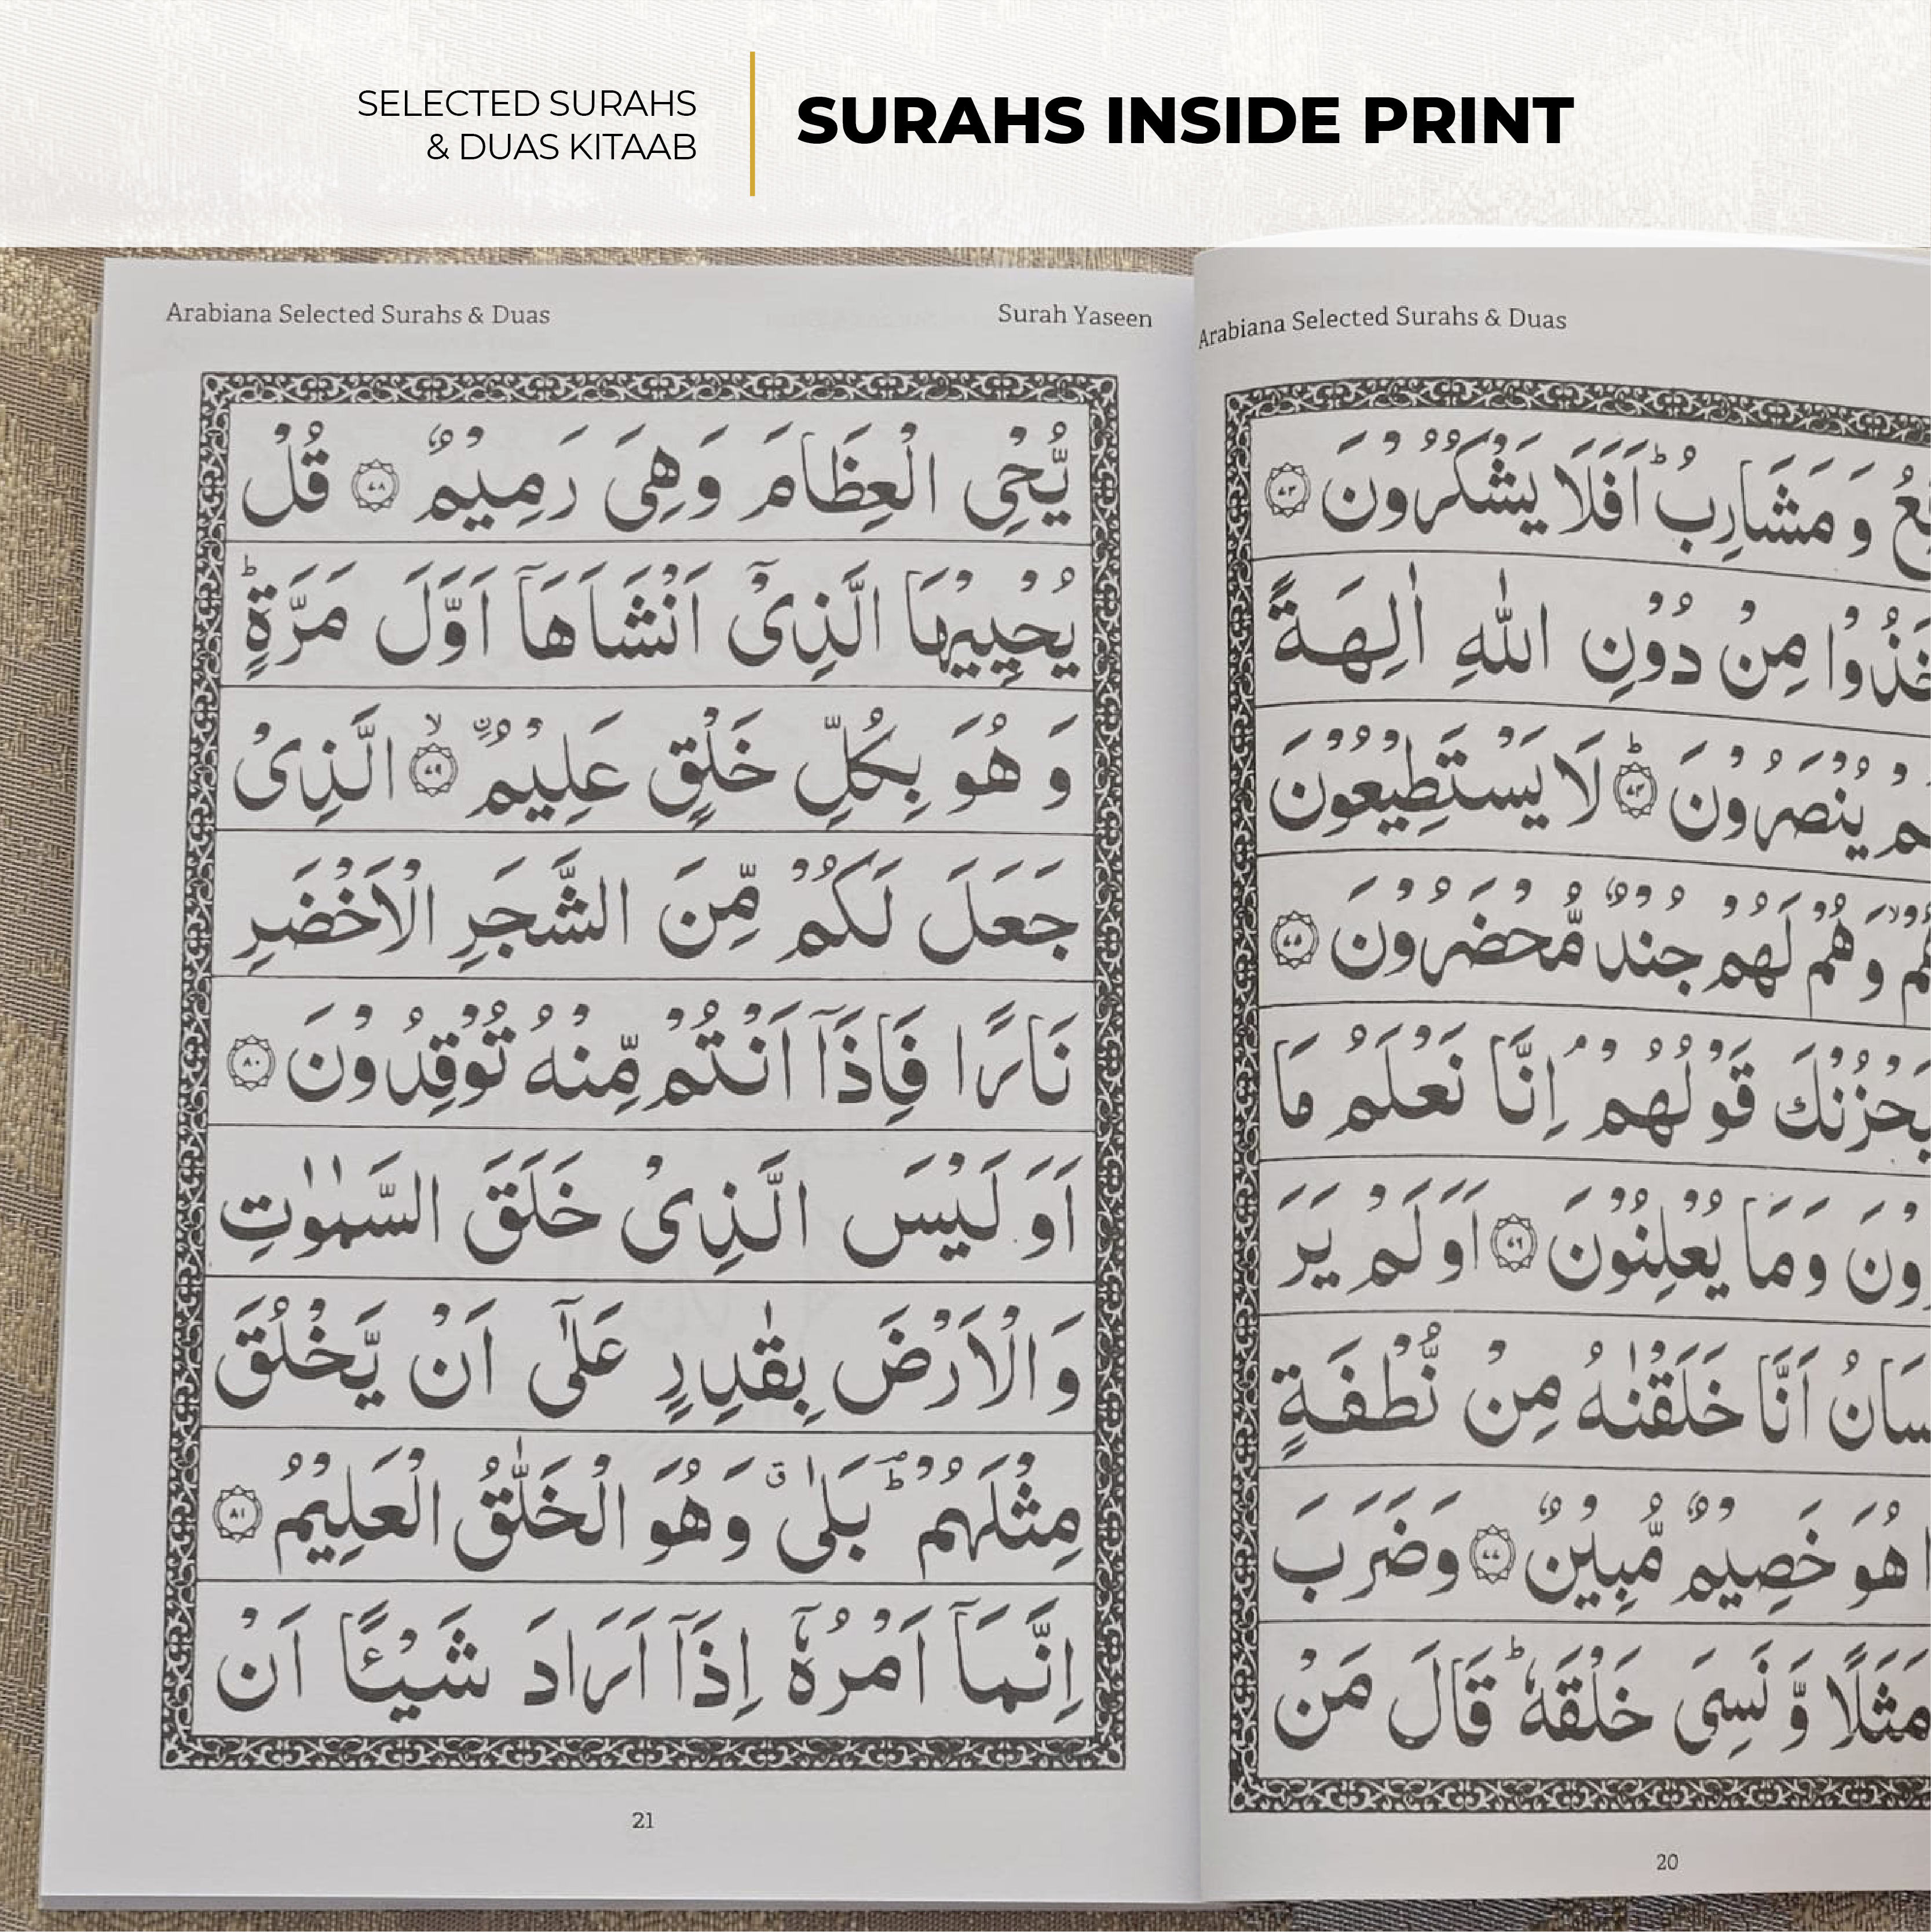 SELECTED SURAHS
& DUAS KITAAB
SURAHS INSIDE PRINT
Arabiana Selected Surahs & Duas
وَ مَشَارِبُ ؕ اَفَلَا يَشْكُرُوْنَ ﴿۷۳﴾
مِنْ دُوْنِ اللّٰهِ اٰلِهَةً
يُنْصَرُوْنَ ؕ ﴿۷۴﴾ لَا يَسْتَطِيْعُوْنَ
وَهُمْ لَهُمْ جُنْدٌ مُّحْضَرُوْنَ ﴿۷۵﴾
قَوْلُهُمْ ۘ اِنَّا نَعْلَمُ مَا
وَمَا يُعْلِنُوْنَ ﴿۷۶﴾ اَوَ لَمْ يَرَ
اَنَّا خَلَقْنٰهُ مِنْ نُّطْفَةٍ
هُوَ خَصِيْمٌ مُّبِيْنٌ ﴿۷۷﴾ وَضَرَبَ
مَثَلًا وَّ نَسِىَ خَلْقَهٗ ؕ قَالَ مَنْ
20
Arabiana Selected Surahs & Duas
Surah Yaseen
يُّحْىِ الْعِظَامَ وَهِىَ رَمِيْمٌ ﴿۷۸﴾ قُلْ
يُحْيِيْهَا الَّذِىْۤ اَنْشَاَهَاۤ اَوَّلَ مَرَّةٍ ؕ
وَ هُوَ بِكُلِّ خَلْقٍ عَلِيْمُ ۨ ۙ ﴿۷۹﴾ الَّذِىْ
جَعَلَ لَكُمْ مِّنَ الشَّجَرِ الْاَخْضَرِ
نَارًا فَاِذَاۤ اَنْتُمْ مِّنْهُ تُوْقِدُوْنَ ﴿۸۰﴾
اَوَ لَيْسَ الَّذِىْ خَلَقَ السَّمٰوٰتِ
وَالْاَرْضَ بِقٰدِرٍ عَلٰٓى اَنْ يَّخْلُقَ
مِثْلَهُمْ ؕ بَلٰى ۗ وَهُوَ الْخَلّٰقُ الْعَلِيْمُ ﴿۸۱﴾
اِنَّمَاۤ اَمْرُهٗۤ اِذَاۤ اَرَادَ شَيْـًٔا اَنْ
21